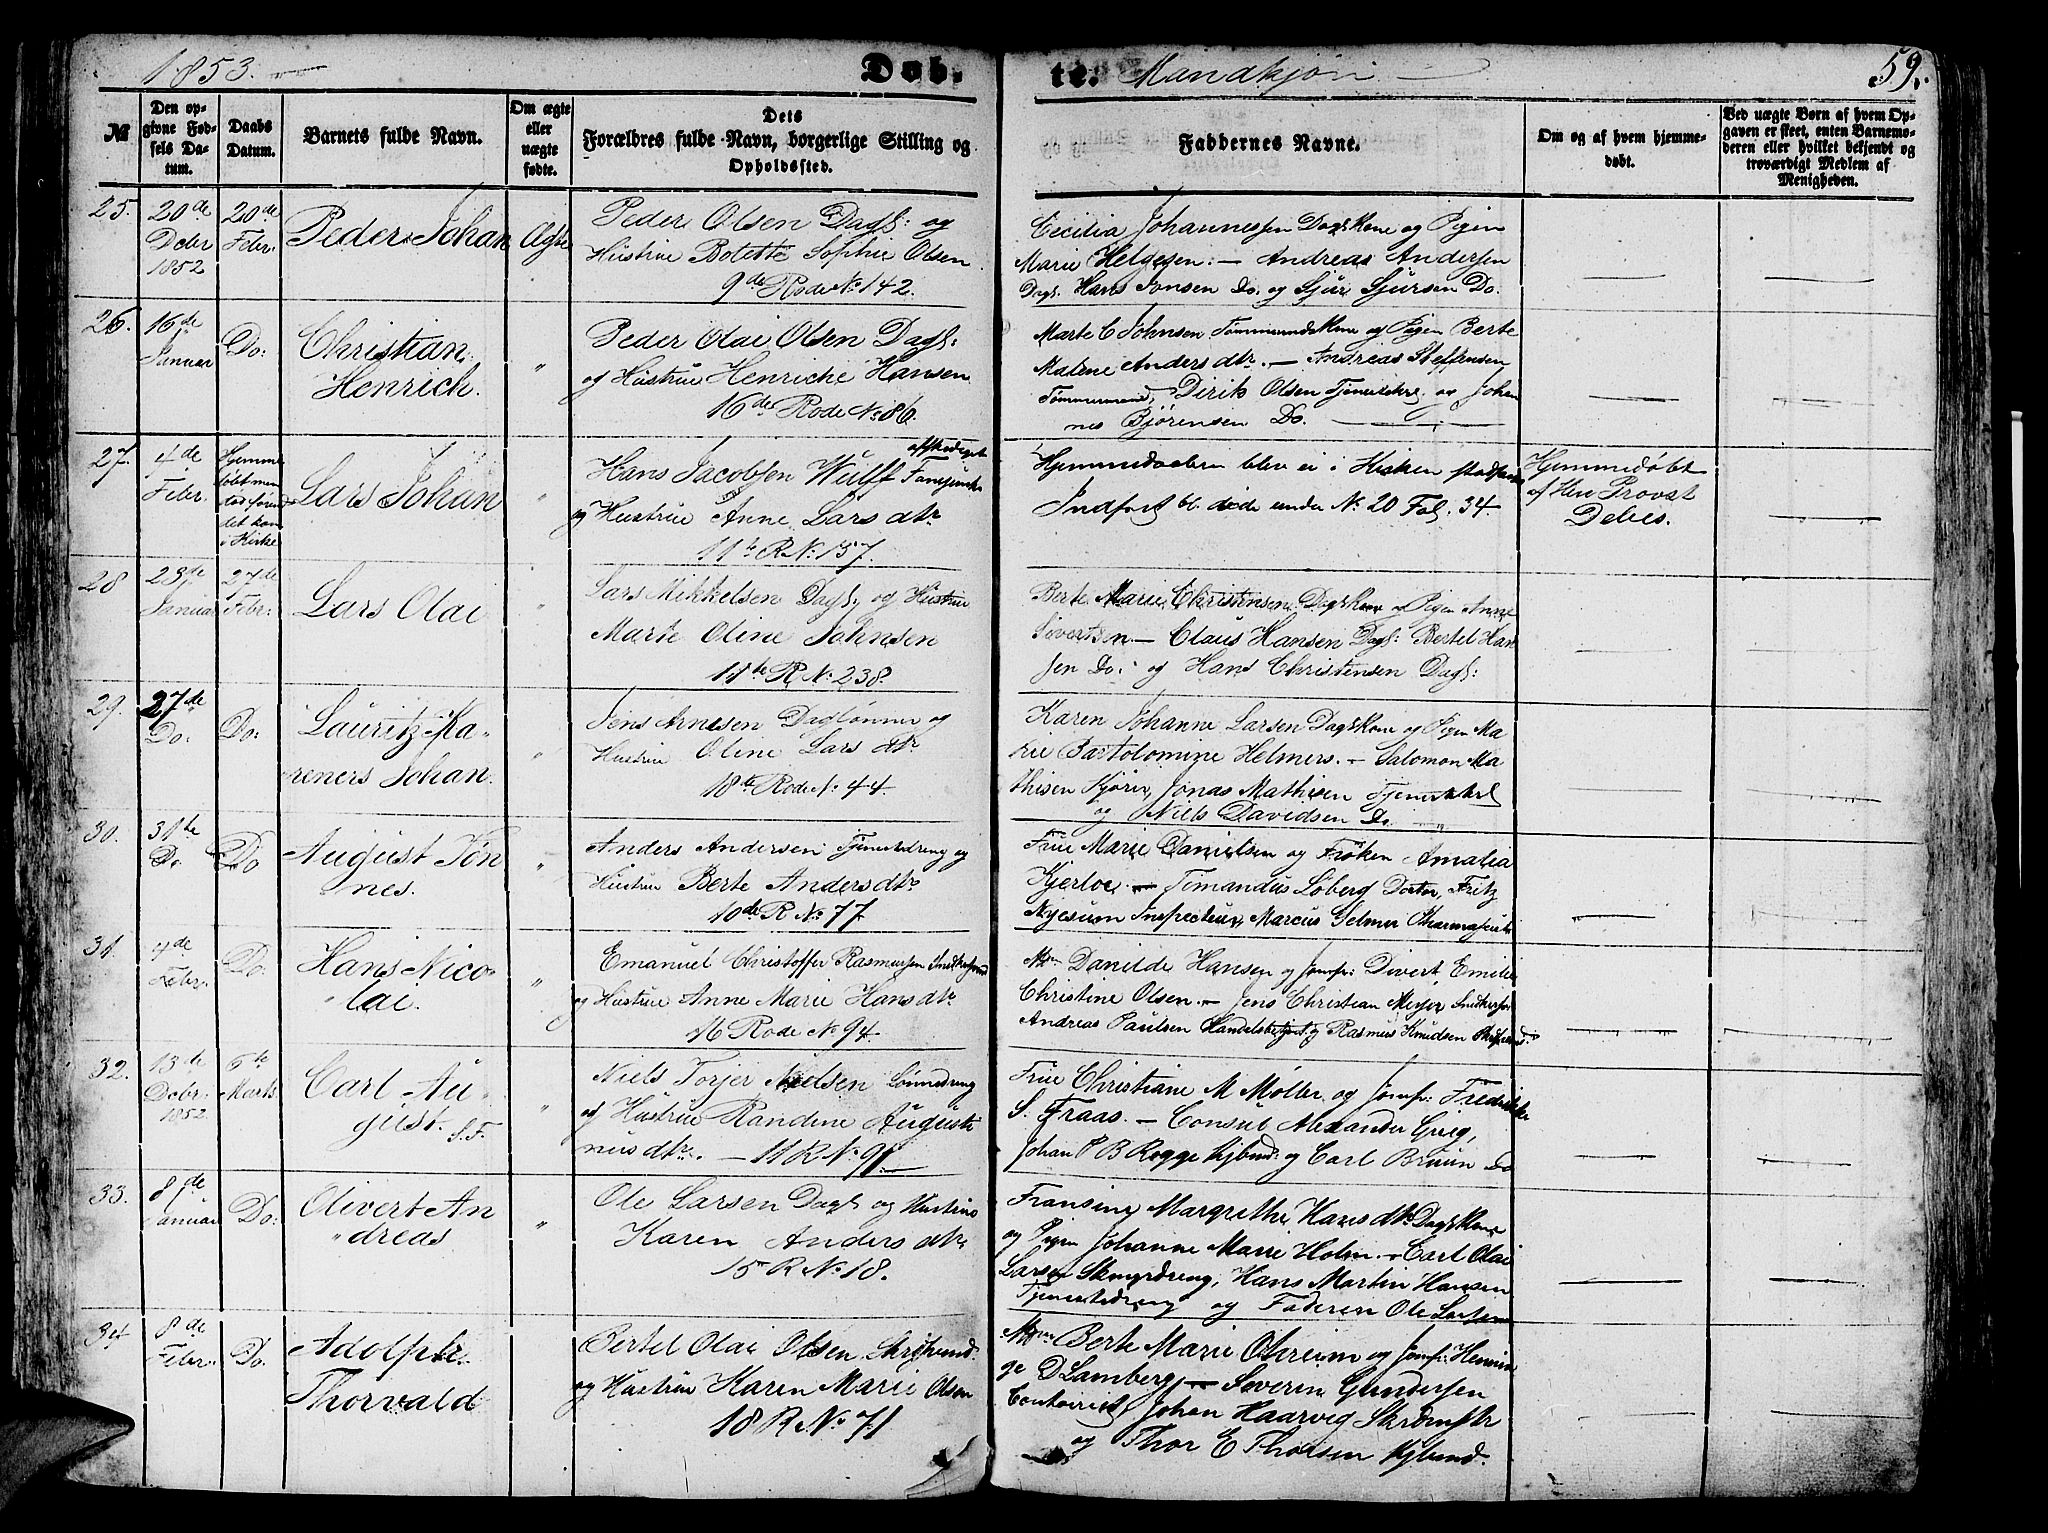 1853. Døb- te. Mandkjøn 59.
№
Den opgivne Fødsels Datum.
Daabs Datum.
Barnets fulde Navn.
Om ægte eller uægte fødte.
Dets Forældres fulde Navn, borgerlige Stilling og Opholdssted.
Faddernes Navne.
Om og af hvem hjemmedøbt.
Ved uægte Børn af hvem Opgaven er skeet, enten Barnemoderen eller hvilket bekjendt og troværdigt Medlem af Menigheden.
25.
20de Debr 1852
20de Febr.
Peder Johan
Ægte
Peder Olsen Dagl: og
Hustrue Botette Sophie Olsen
9de Rode No 142.
Cecilia Johannessen Dagl Kone og Pigen
Marie Helgesen: — Andreas Andersen
Dagl. Hans Jonsen Do. og Sjur Sjursen Do.
26.
16de Januar
Do:
Christian
Henrich.
"
Peder Olai Olsen Dagl:
og Hustrue Henriche Hansen
16de Rode No 86.
Marte C Johnsen Tømmermds Kone og Pigen Berte
Malene Andersdtr. — Andreas Steffensen
Tømmermand, Dirik Olsen Tjenestekrl. og Johan
nes Bjørensen Do.
27.
4de Febr.
Hjemme
døbt men
død før
det kom
i Kirke
Lars Johan
"
Hans Jacobsen Wulff afskediget
og Hustrue Anne Larsdtr
11te R No 157.
Hjemmedaaben blev ei i Kirken stadfæstet
Indført bl. døde under No 20 Fol. 34.
Hjemmedøbt
af Hen Provst
Debes.
28
23de Januar
27de Febr:
Lars Olai
"
Lars Mikkelsen Dagl, og Hustrue
Marte Oline Johnsen
11te R No 238.
Berte Marie Christensen Dagl Kone og Pigen Anne
Sivertsen. — Claus Hansen Dagl: Bertel Han
sen Do: og Hans Christensen Dagl:
29.
27de Do:
Do:
Lauritz Ka-
reners Johan.
"
Jens Arnesen Dagl og
Hustrue Oline Larsdtr
18de Rode No 44.
Karen Johanne Larsen Dagl Kone og Pigen Ma
rie Bartolomine Helmers. — Salomon Ma
thisen, Jonas Mathisen Tjenestekrl
og Niels Davidsen Do.
30.
31te Do
Do
August Tøn
nes.
"
Anders Andersen Tjenestedreng og
Hustrue Berte Andersdtr
10de R No 77
Frue Marie Danielsen og Frøken Amalia
Kjerloe. — Timandus Løberg Doctor, Fritz
Inspecteur, Marcus Gelmer Pharmaseut
31.
4de Febr.
Do:
Hans Nico
lai.
"
Emanuel Christoffer Rasmusen
og Hustrue Anne Marie Hansdtr
16 Rode No 94.
Md Danilde Hansen og Jomfr: Divert Emilie
Christine Olsen. — Jens Christian Meyer
Andreas Paulsen Handelsbetjent og Rasmus Knudsen
32.
13de Debr. 1852.
6te Marts
Carl Au-
gust. S.F.
"
Niels Torjer Nielsen Lønnedreng
og Hustrue Randine Augusti
nusdtr. — 11 R No 91.
Frue Christiane M Møller og Jomfr: Fredrikke
S. Fraas. — Consul Alexander Grieg,
Johan P B Rogge Kjbmd: og Carl Bruun Do
33.
8de Januar
Do:
Olivert An
dreas
"
Ole Larsen Dagl og Hustrue
Karen Andersdtr
15 R No 18.
Fransine Margrethe Hansdtr Dagl Kone
og Pigen Johanne Marie Holm. — Carl Olai
Larsen, Hans Martin Hansen
Tjenestedreng og Faderen Ole Larsen
34
8de Febr.
Do.
Adolph
Thorvald
Bertel Olai Olsen
og Hustrue Karen Marie Olsen
18 R No 71
Md Berte Marie Ohreim og Jomfr: Hennin
ge D Lamberg — Severin Gundersen
Contoirist, Johan Haarvig
og Thor E Thorsen Kjbmd.